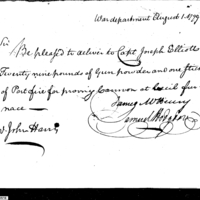 War department August 1. 1799
Sir
Be pleased to deliver to Capt Joseph Elliott
Twenty nine pounds of Gun powder and one stick
of Port fire for proving Cannon at Cecil Fur
nace
James McHenry
Samuel Hodgdon
John Harris